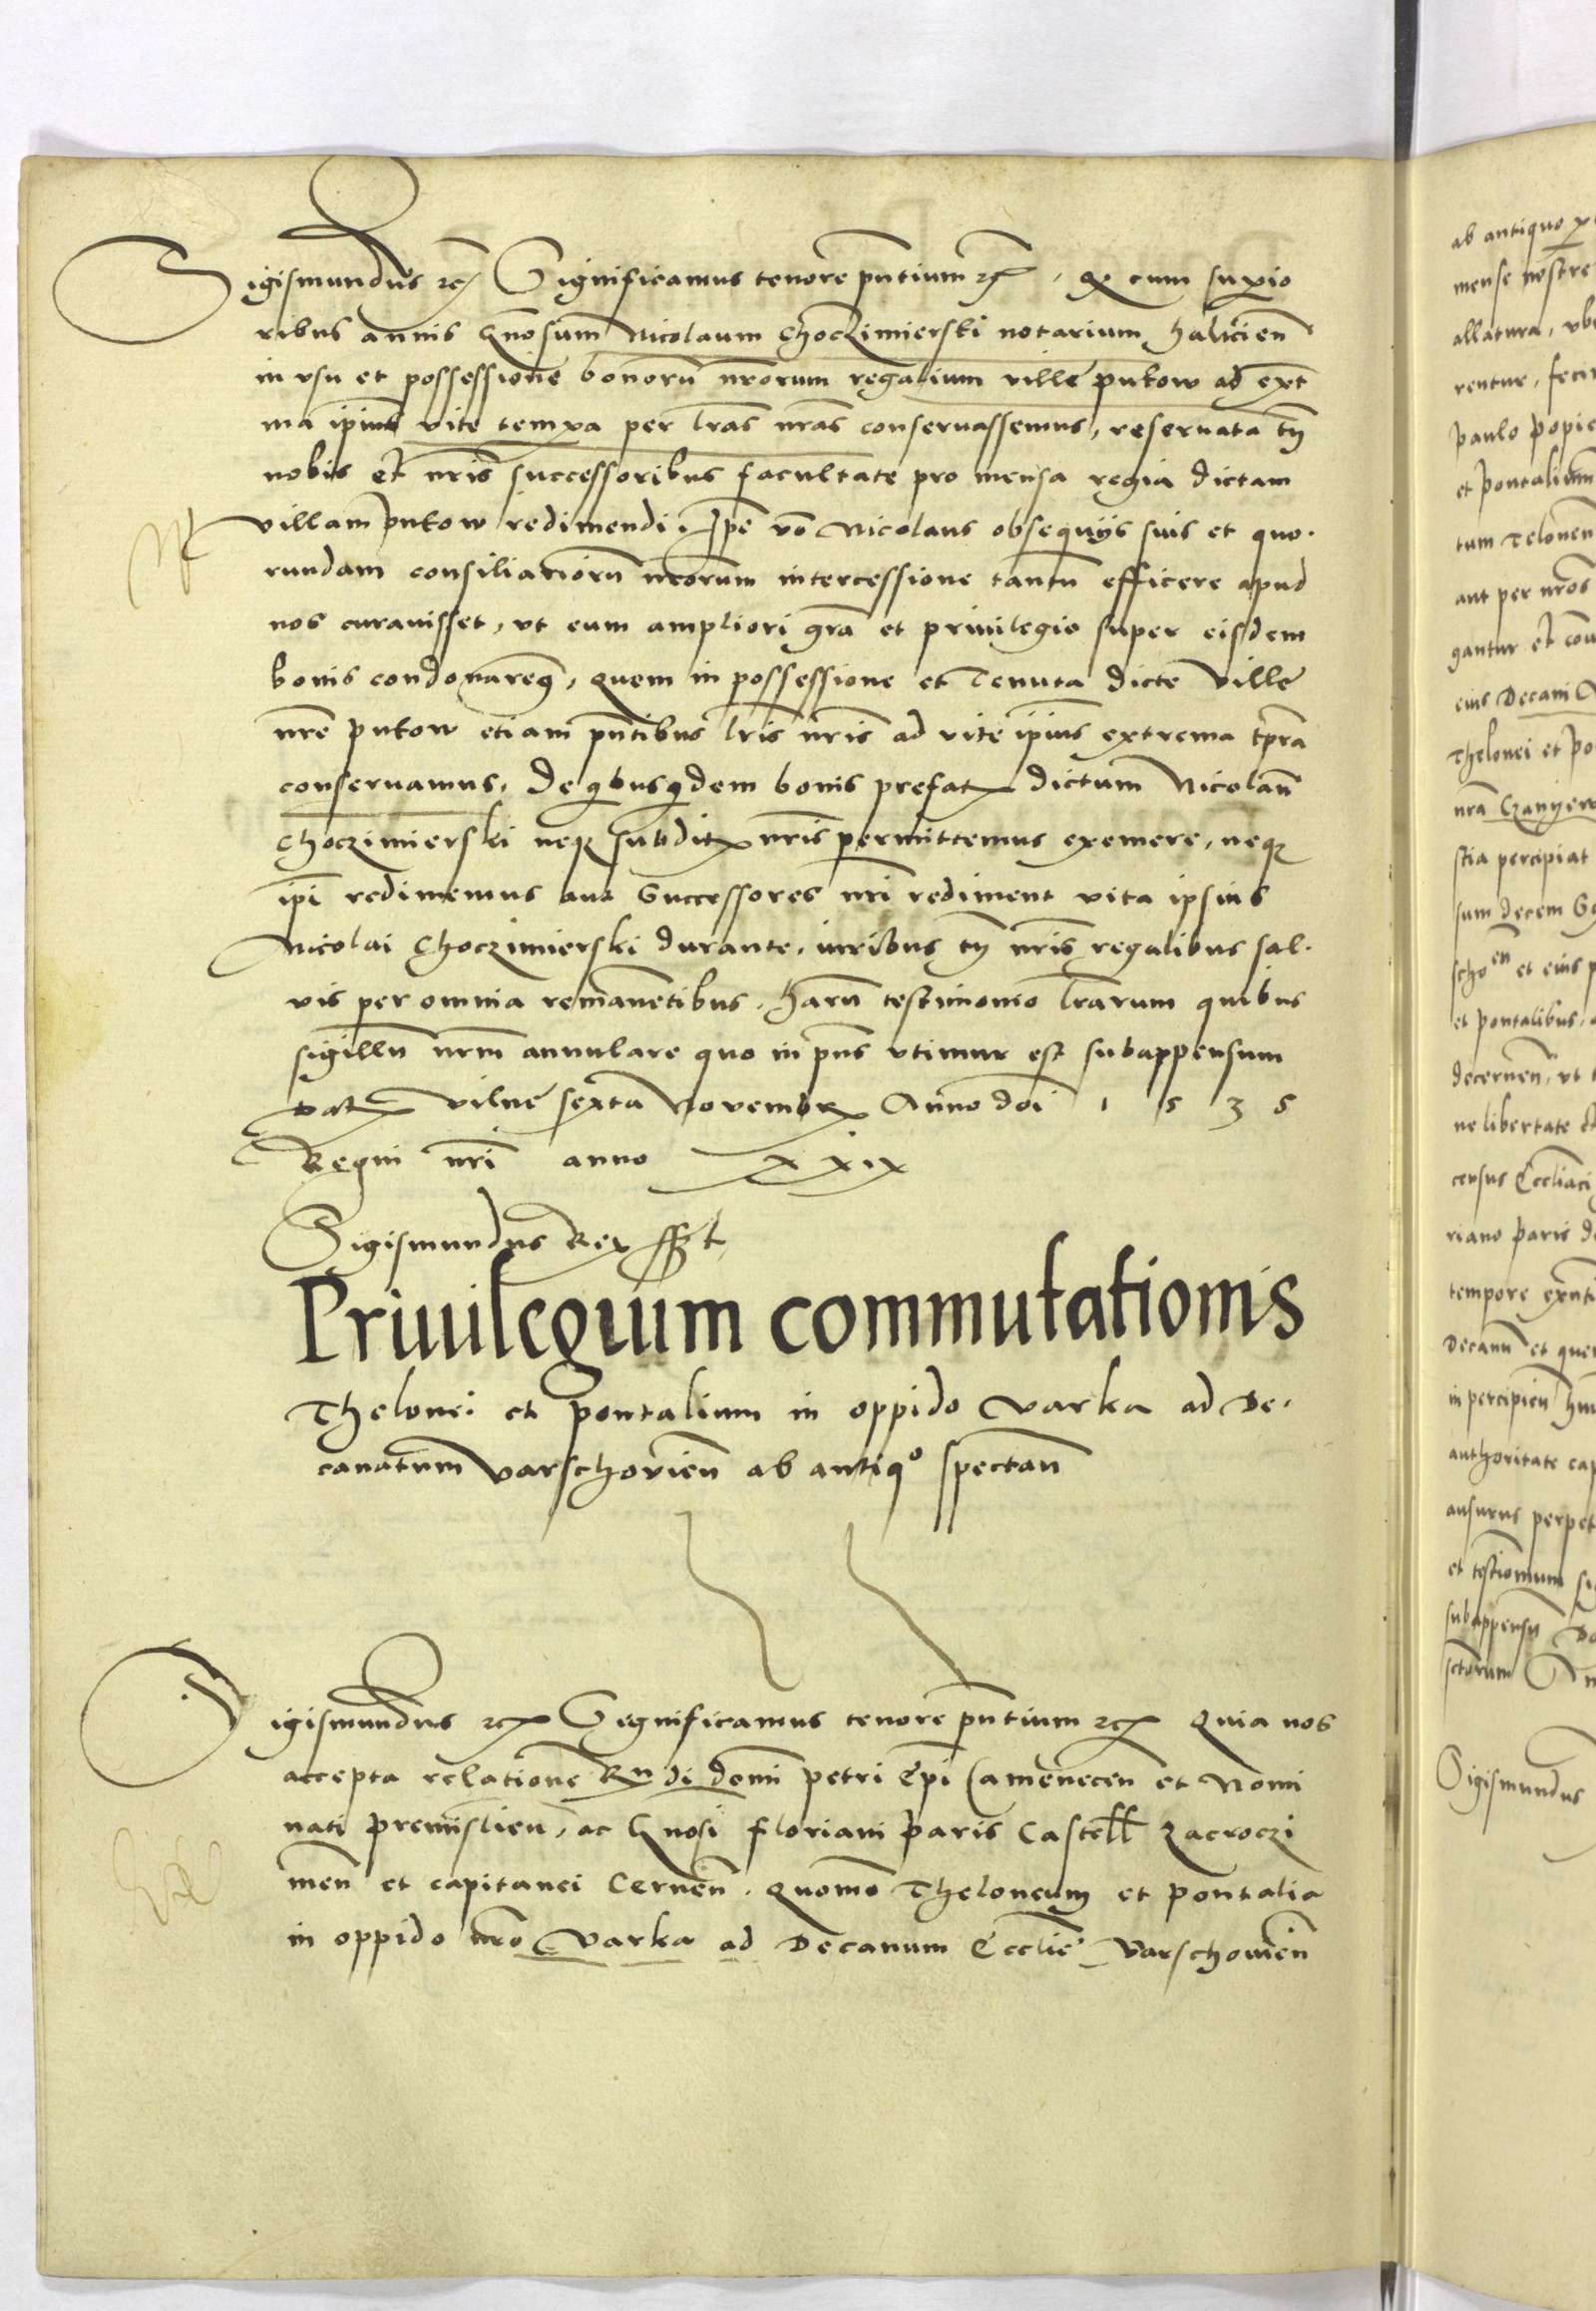 Sigismundus rc Significamus tenore pntium rc, q cum superio
ribus annis Gnosum Nicolaum Choczimierski notarium halicien
in vsu et possessione bonoru nrorum regalium ville putow ad extr
ma ipius vite tempora per lras nras conseruassemus, reseruata tn
nobis et nris successoribus facultate pro mensa regia dictam
villam putow redimendi. Ipe vo Nicolaus obsequijs suis et quo.
rundam consiliarioru nrorum intercessione tantu efficere apud
nos curauisset, vt eum ampliori gra et priuilegio super eisdem
bonis condonareq, quem in possessione et Tenuta dicte ville
nre putow etiam pntibus lris nris ad vite ipius extrema tpra
conseruamus, De qbusqdem bonis prefat dictum Nicolau
Choczimierski neq subdit nris permittemus exemere, neq
ipi redimemus aut Successores nri rediment vita ipsius
Nicolai Choczimierski durante, iuribus tn nris regalibus sal.
vis per omnia remanetibus. Haru testimonio lrarum quibus
sigillu nrm annulare quo in pns vtimur est subappensum
Dat vilne sexta Novembr Anno doi 1 5 3 5
Regni nri anno XXIX
Sigismundus Rex sst
Priuilegium commutationis
Thelonei et pontalium in oppido Varka ad De.
canatum varschovien ab antiqo spectan
Sigismundus rc Significamus tenore pntium rc Quia nos
accepta relatione Rndi domi petri Epi Camenecen et Nomi
nati premislien, ac Gnosi floriani paris Castell Zacroczi
men et capitanei Cernen. Quomo Theloneum et pontalia
in oppido nro Varka ad Decanum Ecclie varschouien
ab antiquo
mense nostre
allatura, vb
rentur, feci
paulo popie
et pontalium
tum Telonen
aut per nros
gantur et con
eius Decani
Thelonei et po
nra Czanyew
stia percipiat
sum decem
et eius p
et pontalibus.
decernen, vt
ne libertate
census Ecclia
riano paris d
tempore
Decanu et que
in percipien
authoritate cap
ausurus perpet
et testimonium
subappensu
Sigismundus